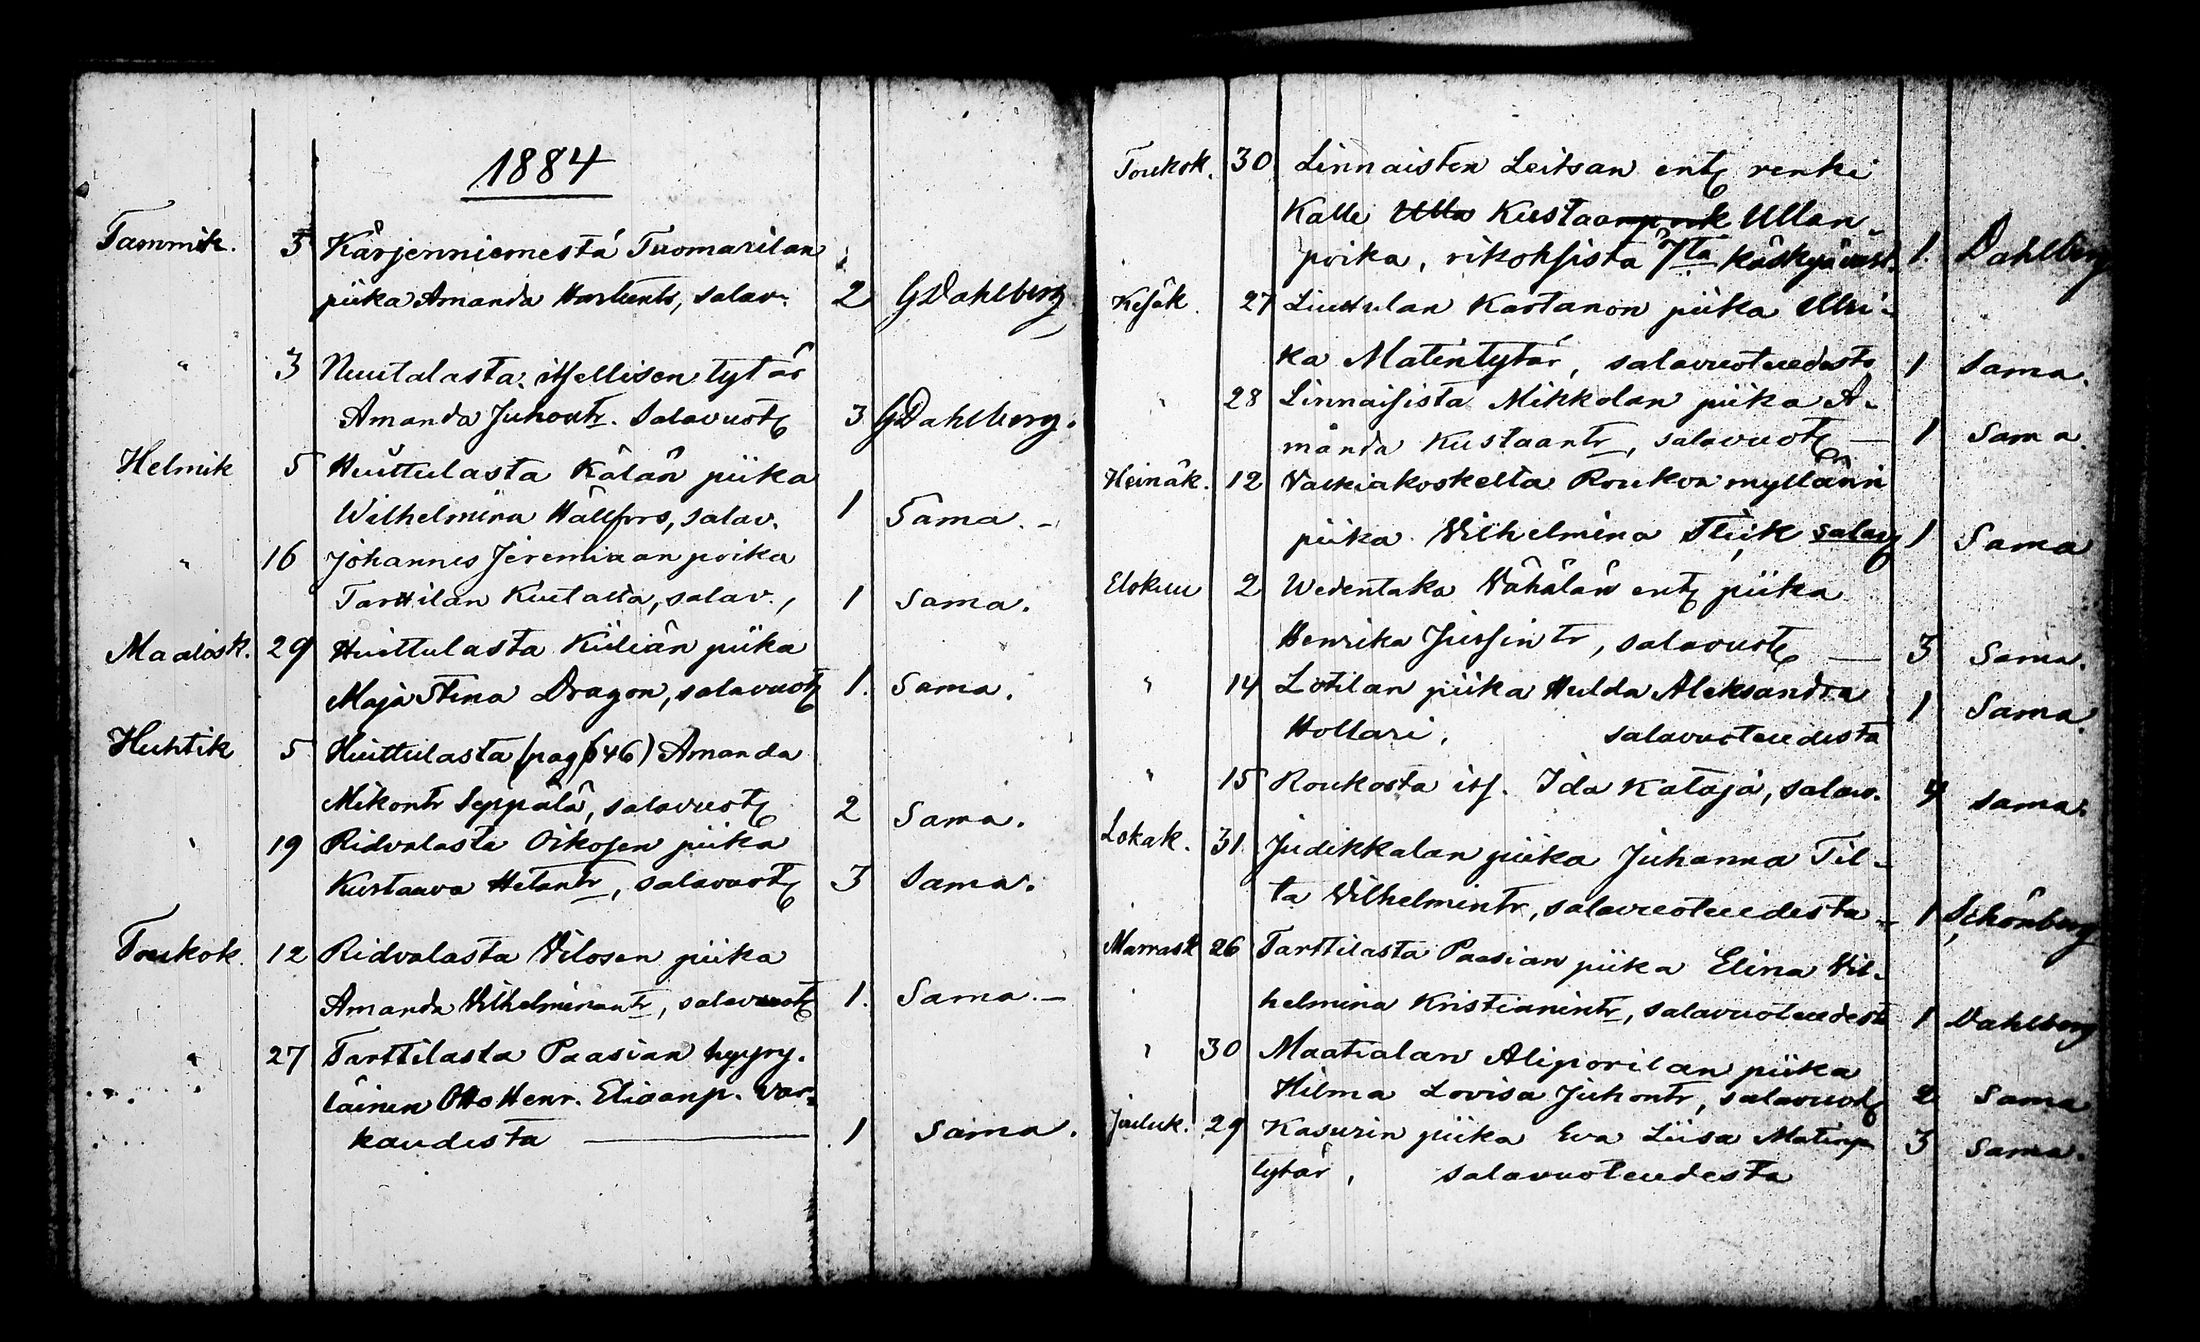 1884
Tammik. 3 Kärjenniemestä Tuomarilan
piika Amanda, salav. 2 GDahlberg.
" 3 Nuutalasta itsellisen tytär
Amanda Juhontr. Salavuot. 3 GDahlberg.
Helmik 5 Huittulasta Kälän piika
Wilhelmina Hällfors, salav. 1 Sama. -
" 16 Johannes Jeremiaan poika
Tarttilan, salav., 1 Sama.
Maalisk. 29 Huittulasta Kiliän piika
Maja Stina Dragon, salavuot. 1. Sama.
Huhtik 5 Huittulasta (pag 646) Amanda
Mikontr Seppälä, salavuot. 2 Sama.
" 19 Ridvalasta Oikosen piika
Kustaava, salavuot. 3 Sama.
Toukok. 12 Ridvalasta Vilosen piika
Amanda Vilhelminantr, salavuot. 1. Sama. -
" 27 Tarttilasta Paasian hyyry-
läinen Otto Henr. Eliaanp. Var-
kaudesta — 1 Sama.
Toukok. 30 Linnaisten Leitsan ent. renki
Kalle Ulla Kustaanpoik Ullan-
poika, rikoksista 7tä käskyä vast. 1. Dahlberg
Kesäk. 27 Liuttulan Kartanon piika Ulri-
ka Matintytär, salavuoteudesta 1 Sama.
" 28 Linnaisista Mikkolan piika A-
manda Kustaantr, salavuot. — 1 Sama.
Heinäk. 12 Valkiakoskelta Roukon myllärin
piika Vilhelmina Sliik salav. 1 Sama
Elokuu 2 Wedentaka Vähälän ent. piika
Henrika Jussintr, salavuot. — 3 Sama.
" 14 Lotilan piika Hulda Aleksandra
Hollari, salavuoteudesta 1 Sama.
" 15 Roukosta its. Ida Kataja, salav. 4 Sama.
Lokak. 31 Judikkalan piika Juhanna Til-
ta Vilhelmintr, salavuoteudesta - 1 Schönberg
Marrask 26 Tarttilasta Paasian piika Elina Vil-
helmina Kristianintr, salavuoteudest 1 Dahlberg
" 30 Maatialan Aliporilan piika
Hilma Lovisa Juhontr, salavuot. 2 Sama
Jouluk. 29 Kasurin piika Eva Liisa Matin
tytär, salavuoteudesta 3 Sama.